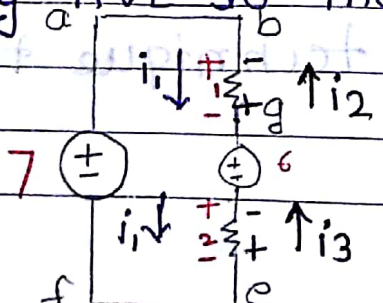 a b
i₁ + - 1 - + g i2
7 + - + - 6
i₁ + - 2 - + i3
f e